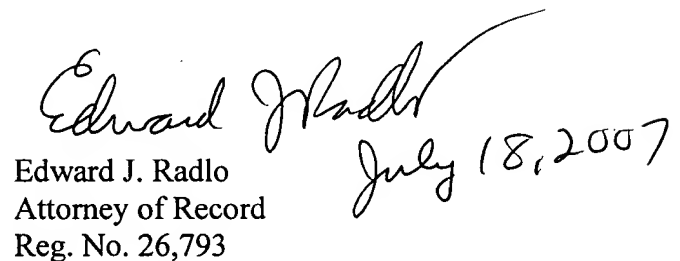 Edward J Radlo
July 18, 2007
Edward J. Radlo
Attorney of Record
Reg. No. 26,793